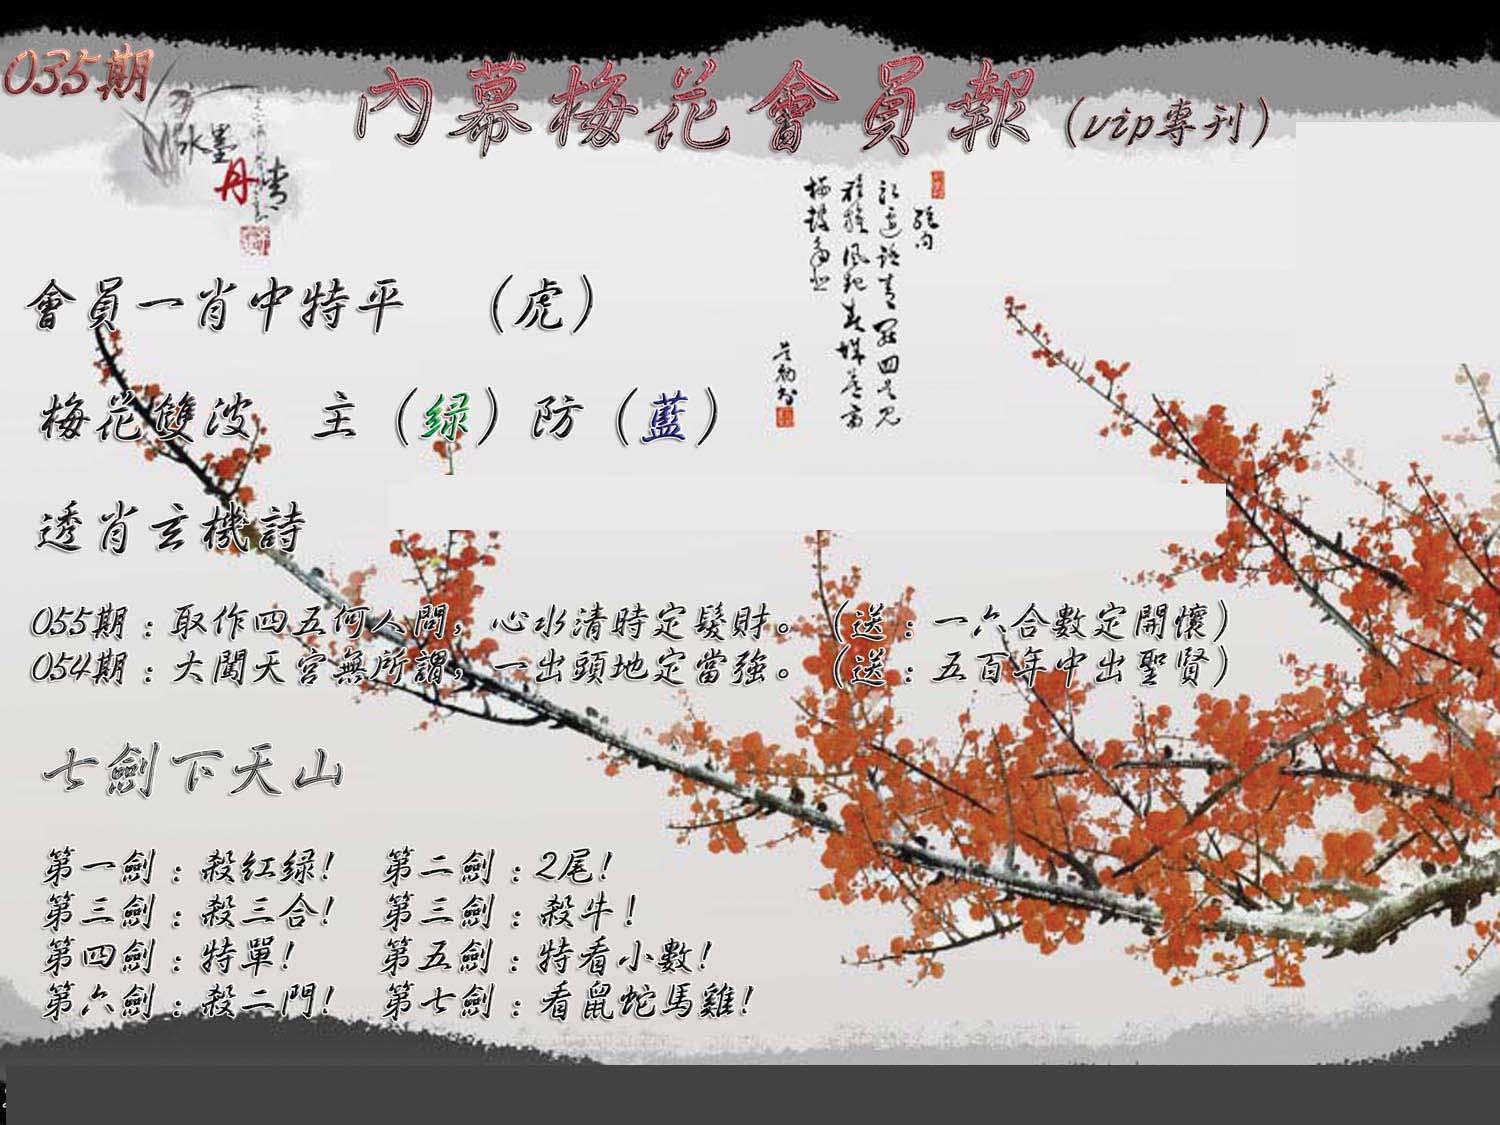 035期
內幕梅花會員報（vip專刊）
水墨
丹青
會員一肖中特平　（虎）
梅花雙波　主（綠）防（藍）
透肖玄機詩
055期：取作四五何人問，心水清時定髮財。（送：一六合數定開懷）
054期：大闖天宮無所謂，一出頭地定當強。（送：五百年中出聖賢）
七劍下天山
第一劍：殺紅綠！　第二劍：2尾！
第三劍：殺三合！　第三劍：殺牛！
第四劍：特單！　第五劍：特看小數！
第六劍：殺二門！　第七劍：看鼠蛇馬雞！